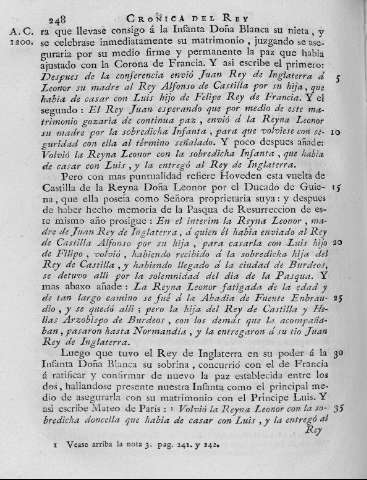 248 CRONICA DEL REY
A. C. ra que llevase consigo á la Infanta Doña Blanca su nieta, y
1200. se celebrase inmediatamente su matrimonio, juzgando se ase-
guraria por su medio firme y permanente la paz que habia
ajustado con la Corona de Francia. Y asi escribe el primero:
Despues de la conferencia envió Juan Rey de Inglaterra á 5
Leonor su madre al Rey Alfonso de Castilla por su hija, que
habia de casar con Luis hijo de Felipe Rey de Francia. Y el
segundo: El Rey Juan esperando que por medio de este ma-
trimonio gozaria de continua paz, envió á la Reyna Leonor
su madre por la sobredicha Infanta, para que volviese con se- 10
guridad con ella al término señalado. Y poco despues añade:
Volvió la Reyna Leonor con la sobredicha Infanta, que habia
de casar con Luis, y la entregó al Rey de Inglaterra.
Pero con mas puntualidad refiere Hoveden esta vuelta de
Castilla de la Reyna Doña Leonor por el Ducado de Guie- 15
na, que ella poseia como Señora proprietaria suya: y despues
de haber hecho memoria de la Pasqua de Resurreccion de es-
te mismo año prosigue: En el interim la Reyna Leonor, ma-
dre de Juan Rey de Inglaterra, á quien él habia enviado al Rey
de Castilla Alfonso por su hija, para casarla con Luis hijo 20
de Filipo, volvió, habiendo recibido á la sobredicha hija del
Rey de Castilla, y habiendo llegado á la ciudad de Burdeos,
se detuvo alli por la solemnidad del dia de la Pasqua. Y
mas abaxo añade: La Reyna Leonor fatigada de la edad y
de tan largo camino se fué á la Abadia de Fuente Enbrau- 25
dio, y se quedó alli; pero la hija del Rey de Castilla y He-
lias Arzobispo de Burdeos, con los demás que la acompaña-
ban, pasaron hasta Normandia, y la entregaron á su tio Juan
Rey de Inglaterra.
Luego que tuvo el Rey de Inglaterra en su poder á la 30
Infanta Doña Blanca su sobrina, concurrió con el de Francia
á ratificar y confirmar de nuevo la paz establecida entre los
dos, hallandose presente nuestra Infanta como el principal me-
dio de asegurarla con su matrimonio con el Principe Luis. Y
asi escribe Mateo de Paris: 1 Volvió la Reyna Leonor con la so- 35
bredicha doncella que habia de casar con Luis, y la entregó al
Rey
1 Vease arriba la nota 3. pag. 241. y 242.